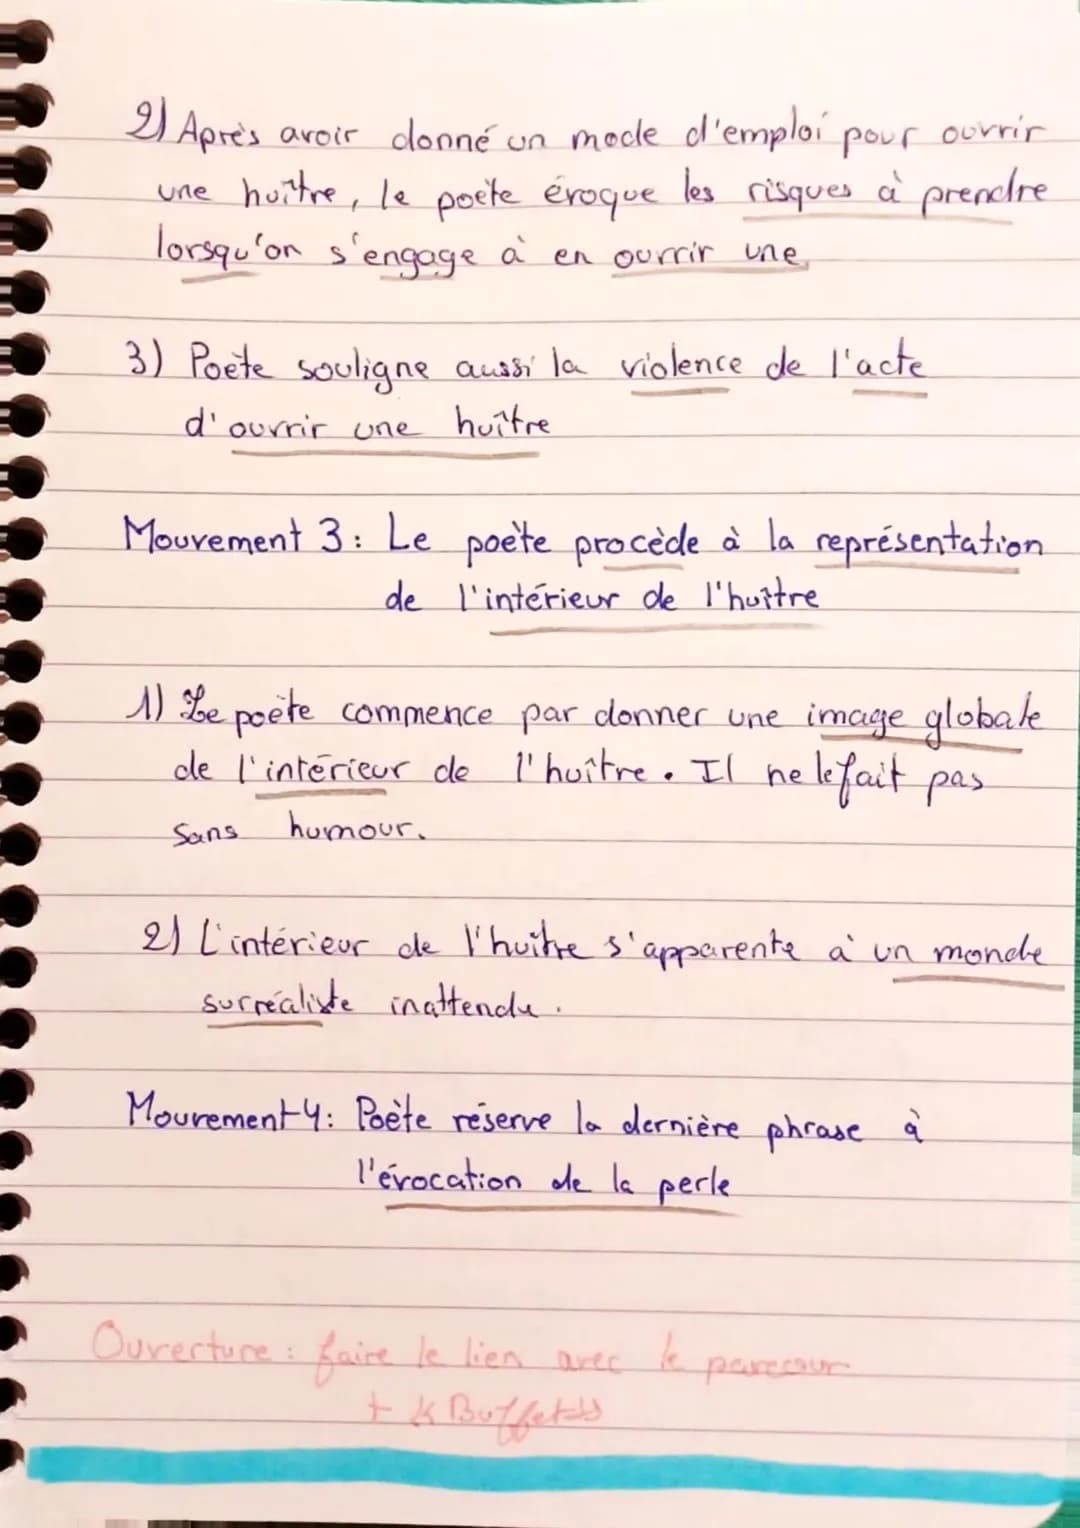 2) Après avoir donné un mode d'emploi pour ouvrir
une huître, le poète évoque les risques à prendre
lorsqu'on s'engage à en ouvrir une,
3) Poète souligne aussi la violence de l'acte
d'ouvrir une huître
Mouvement 3: Le poète procède à la représentation
de l'intérieur de l'huître
1) Le poète commence par donner une image globale
de l'intérieur de l'huître. Il ne le fait pas
sans humour.
2) L'intérieur de l'huître s'apparente à un monde
surréaliste inattendu.
Mouvement 4: Poète réserve la dernière phrase à
l'évocation de la perle
Ouverture: faire le lien avec le parcour
+ « Buffet »